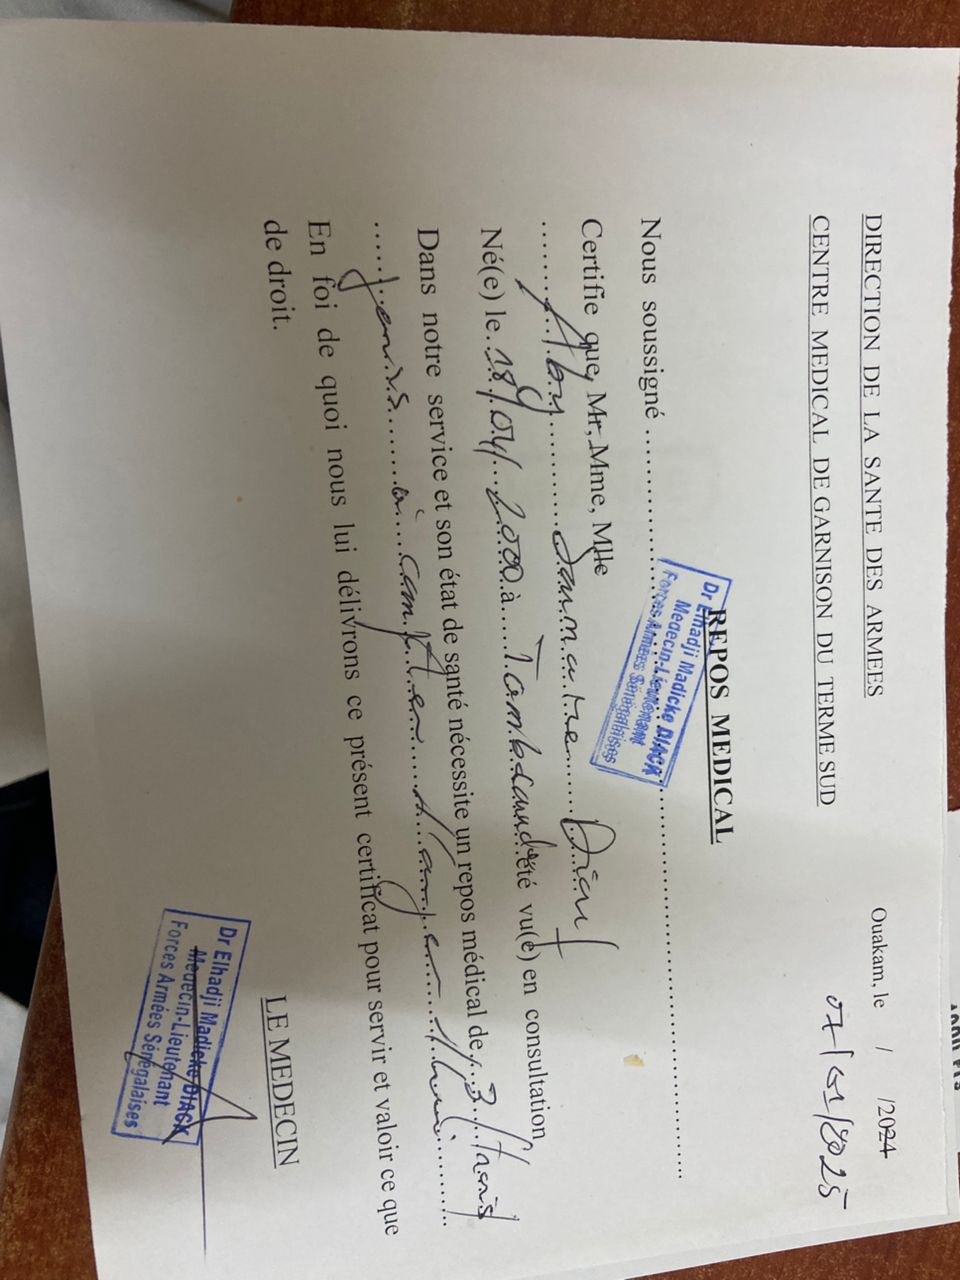 DIRECTION DE LA SANTE DES ARMEES
Ouakam, le / /2024
CENTRE MEDICAL DE GARNISON DU TERME SUD
07/01/2025
REPOS MEDICAL
Dr Elhadji Madicke DIACK
Médecin-Lieutenant
Forces Armées Sénégalaises
Nous soussigné
Certifie que, Mr, Mme, Mlle
Aby Diouf
Né(e) le 18/04/2000 à été vu(e) en consultation
Dans notre service et son état de santé nécessite un repos médical de 3 (trois)
jours à compter d'aujourd'hui.
En foi de quoi nous lui délivrons ce présent certificat pour servir et valoir ce que
de droit.
LE MEDECIN
Dr Elhadji Madicke DIACK
Médecin-Lieutenant
Forces Armées Sénégalaises